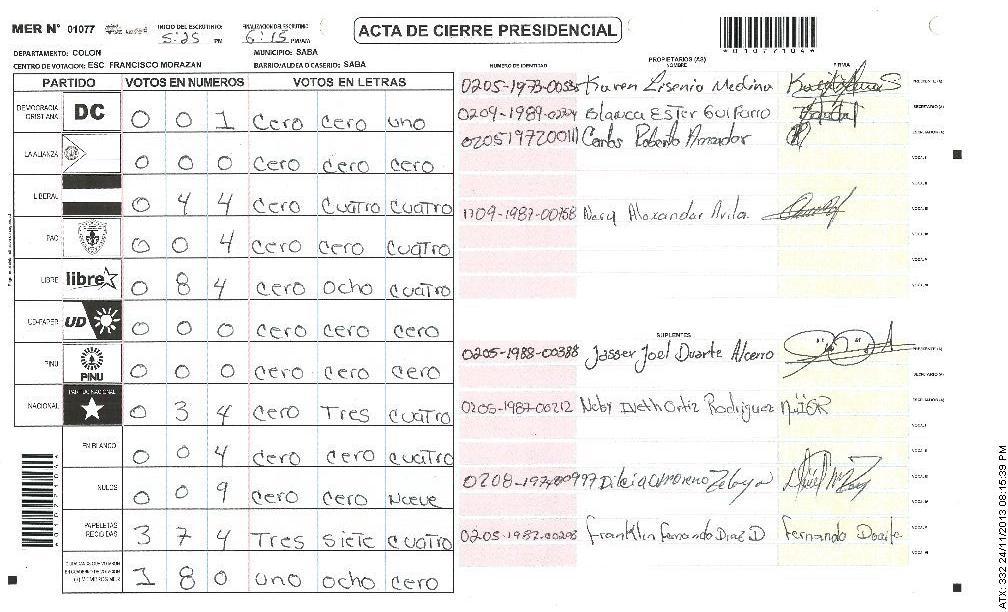 MER N° 01077
INICIO DEL ESCRUTINIO:
5:25 PM
FINALIZACION DEL ESCRUTINIO
6:15 PM/AM
ACTA DE CIERRE PRESIDENCIAL
*01077104*
DEPARTAMENTO: COLON
MUNICIPIO: SABA
CENTRO DE VOTACION: ESC FRANCISCO MORAZAN
BARRIO/ALDEA O CASERIO: SABA
PARTIDO VOTOS EN NUMEROS VOTOS EN LETRAS
DEMOCRACIA CRISTIANA DC 0 0 1 cero cero uno
LA ALIANZA 0 0 0 cero cero cero
LIBERAL 0 4 4 cero cuatro cuatro
PAC 0 0 4 cero cero cuatro
LIBRE libre 0 8 4 cero ocho cuatro
UD-FAPER UD 0 0 0 cero cero cero
PINU PINU 0 0 0 cero cero cero
NACIONAL PARTIDO NACIONAL 0 3 4 cero Tres cuatro
EN BLANCO 0 0 4 cero cero cuatro
NULOS 0 0 9 cero cero Nueve
PAPELETAS RECIBIDAS 3 7 4 Tres siete cuatro
1 8 0 uno ocho cero
PROPIETARIOS (AS)
NUMERO DE IDENTIDAD NOMBRE FIRMA
Karen Lisenia Medina PRESIDENTE (A)
Blanca Ester SECRETARIO (A)
0205197200111 Carlos Roberto Amador ESCRUTADOR (A)
1709-1987-00758 Alexander Avila
SUPLENTES
0205-1988-00388 Jasser Joel Duarte PRESIDENTE (A)
SECRETARIO (A)
0205-1987-00212 Ortiz Rodriguez ESCRUTADOR (A)
Franklin Fernando Fernando
ATX: 332 24/11/2013 08:15:39 PM